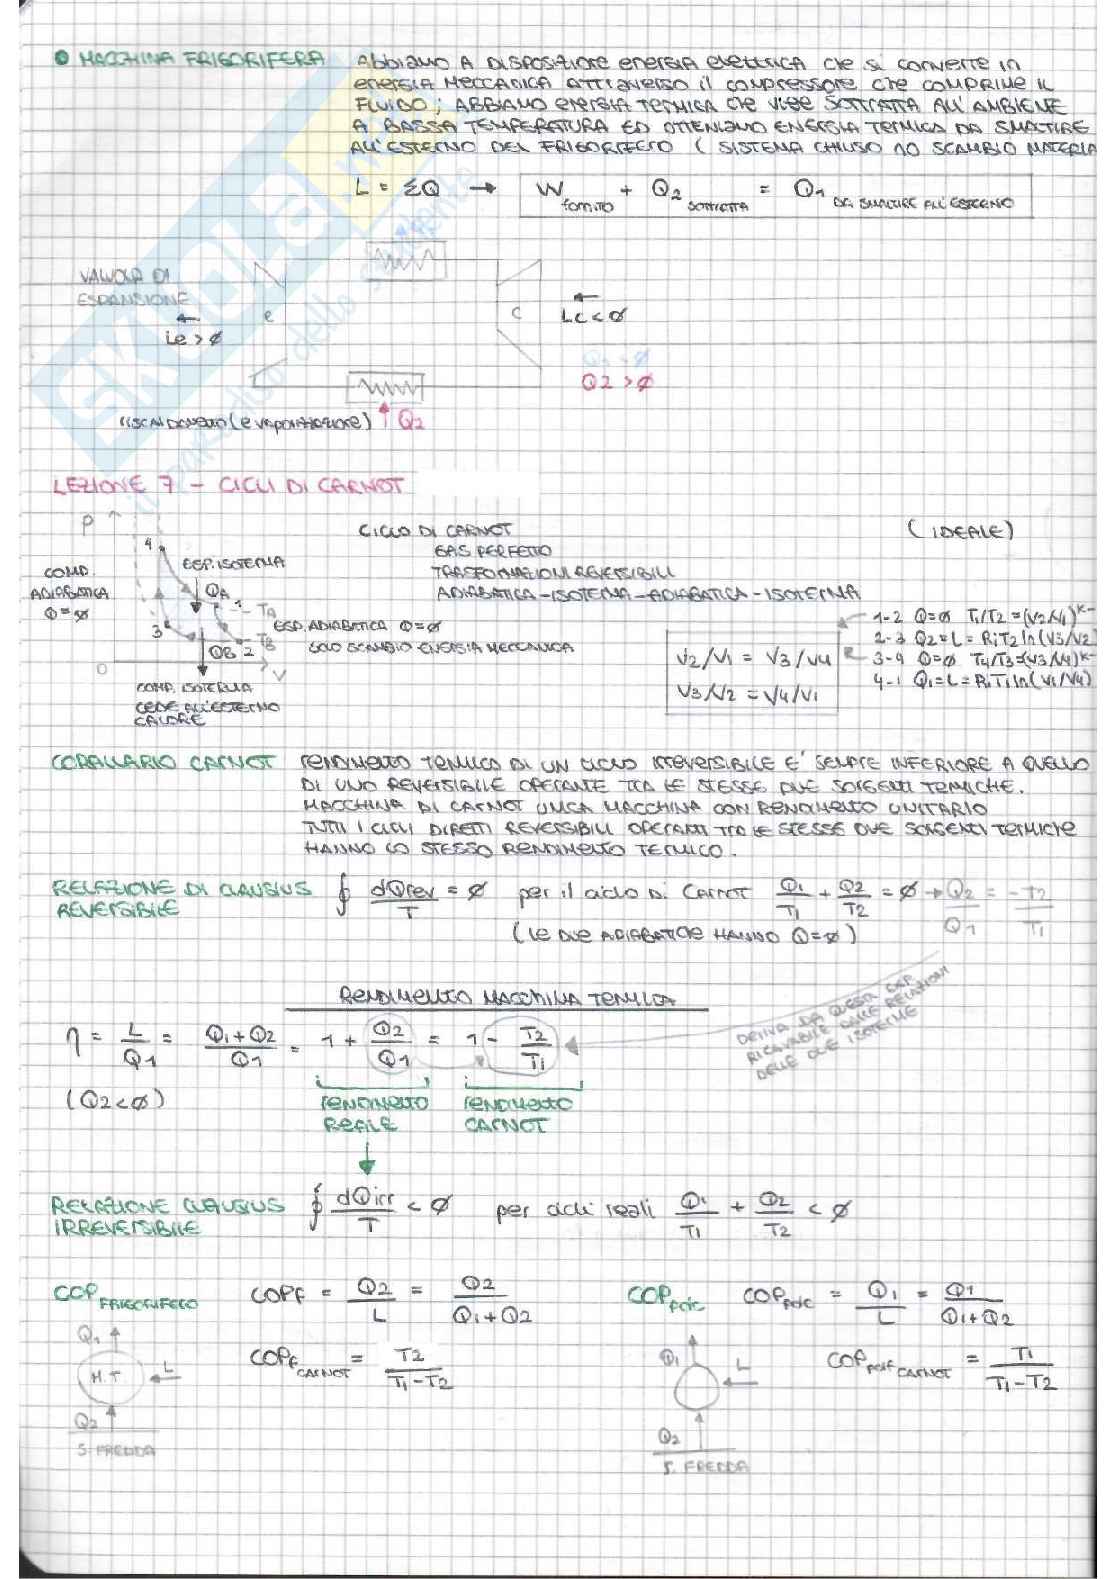 MACCHINA FRIGORIFERA Abbiamo A DISPOSIZIONE energia elettrica che si converte in
energia MECCANICA attraverso il compressore che COMPRIME IL
FLUIDO; ABBIAMO energia TERMICA che viene SOTTRATTA ALL'AMBIENE
A BASSA TEMPERATURA ED OTTENIAMO ENERGIA TERMICA DA SMALTIRE
ALL'ESTERNO DEL FRIGORIFERO (SISTEMA CHIUSO NO SCAMBIO MATERIA
L = ΣQ → W fornito + Q2 SOTTRATTA = Q1 DA SMALTIRE ALL'ESTERNO
VALVOLA DI
ESPANSIONE
Le > ∅
e
C
Lc < ∅
Q1 < ∅
Q2 > ∅
riscaldamento (evaporazione) Q2
LEZIONE 7 - CICLI DI CARNOT
CICLO DI CARNOT (IDEALE)
GAS PERFETTO
TRASFORMAZIONI REVERSIBILI
ADIABATICA-ISOTERMA-ADIABATICA-ISOTERMA
P
4
ESP. ISOTERMA
COMP.
ADIABATICA
Q=∅
QA
1 TA
3
ESP. ADIABATICA Q=∅
SOLO SCAMBIO ENERGIA MECCANICA
QB 2 TB
O V
COMP. ISOTERMA
CEDE ALL'ESTERNO
CALORE
V2/V1 = V3/V4
V3/V2 = V4/V1
1-2 Q=∅ T1/T2 =(V2/V1)^K-
2-3 Q2=L= RiT2 ln(V3/V2)
3-4 Q=∅ T4/T3=(V3/V4)^K-
4-1 Q1=L=RiT1 ln(V1/V4)
COROLLARIO CARNOT RENDIMENTO TERMICO DI UN CICLO IRREVERSIBILE E' SEMPRE INFERIORE A QUELLO
DI UNO REVERSIBILE OPERANTE TRA LE STESSE DUE SORGENTI TERMICHE.
MACCHINA DI CARNOT UNICA MACCHINA CON RENDIMENTO UNITARIO
TUTTI I CICLI DIRETTI REVERSIBILI OPERANTI TRA LE STESSE DUE SORGENTI TERMICHE
HANNO LO STESSO RENDIMENTO TERMICO.
RELAZIONE DI CLAUSIUS REVERSIBILE ∮ dQrev/T = ∅ per il ciclo di CARNOT Q1/T1 + Q2/T2 = ∅ → Q2/Q1 = -T2/T1
(LE DUE ADIABATICHE HANNO Q=∅)
RENDIMENTO MACCHINA TERMICA
η = L/Q1 = Q1+Q2/Q1 = 1 + Q2/Q1 = 1 - T2/T1
DERIVA DA QUESTA
RICAVABILE DALLE RELAZIONI
DELLE DUE ISOTERME
(Q2<∅)
RENDIMENTO REALE
RENDIMENTO CARNOT
RELAZIONE CLAUSIUS IRREVERSIBILE ∮ dQirr/T < ∅ per cicli reali Q1/T1 + Q2/T2 < ∅
COP FRIGORIFERO COPf = Q2/L = Q2/Q1+Q2
COPpdc COPpdc = Q1/L = Q1/Q1+Q2
Q1
M.T
L
Q2
S. FREDDA
COPf CARNOT = T2/T1-T2
Q1
L
Q2
S. FREDDA
COPpdf CARNOT = T1/T1-T2